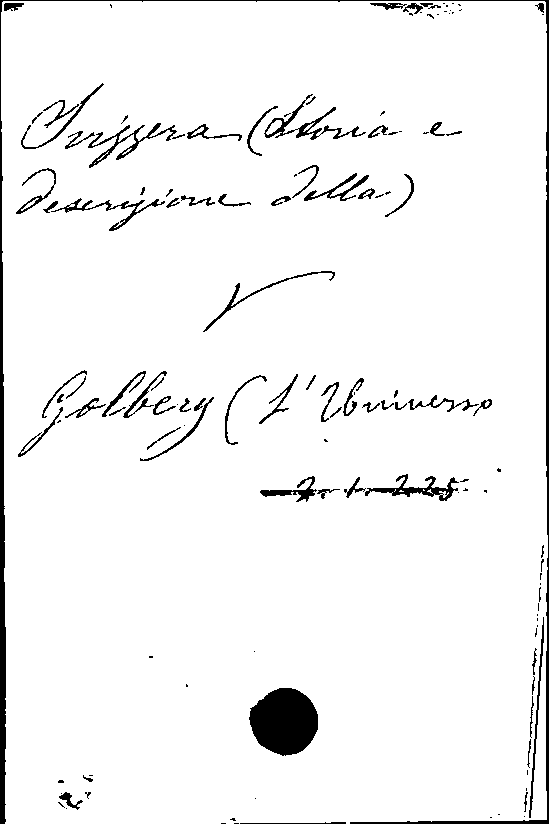 Svizzera (Storia e
descrizione della)
V
Golbery (L'Universo
2. 1. 225.